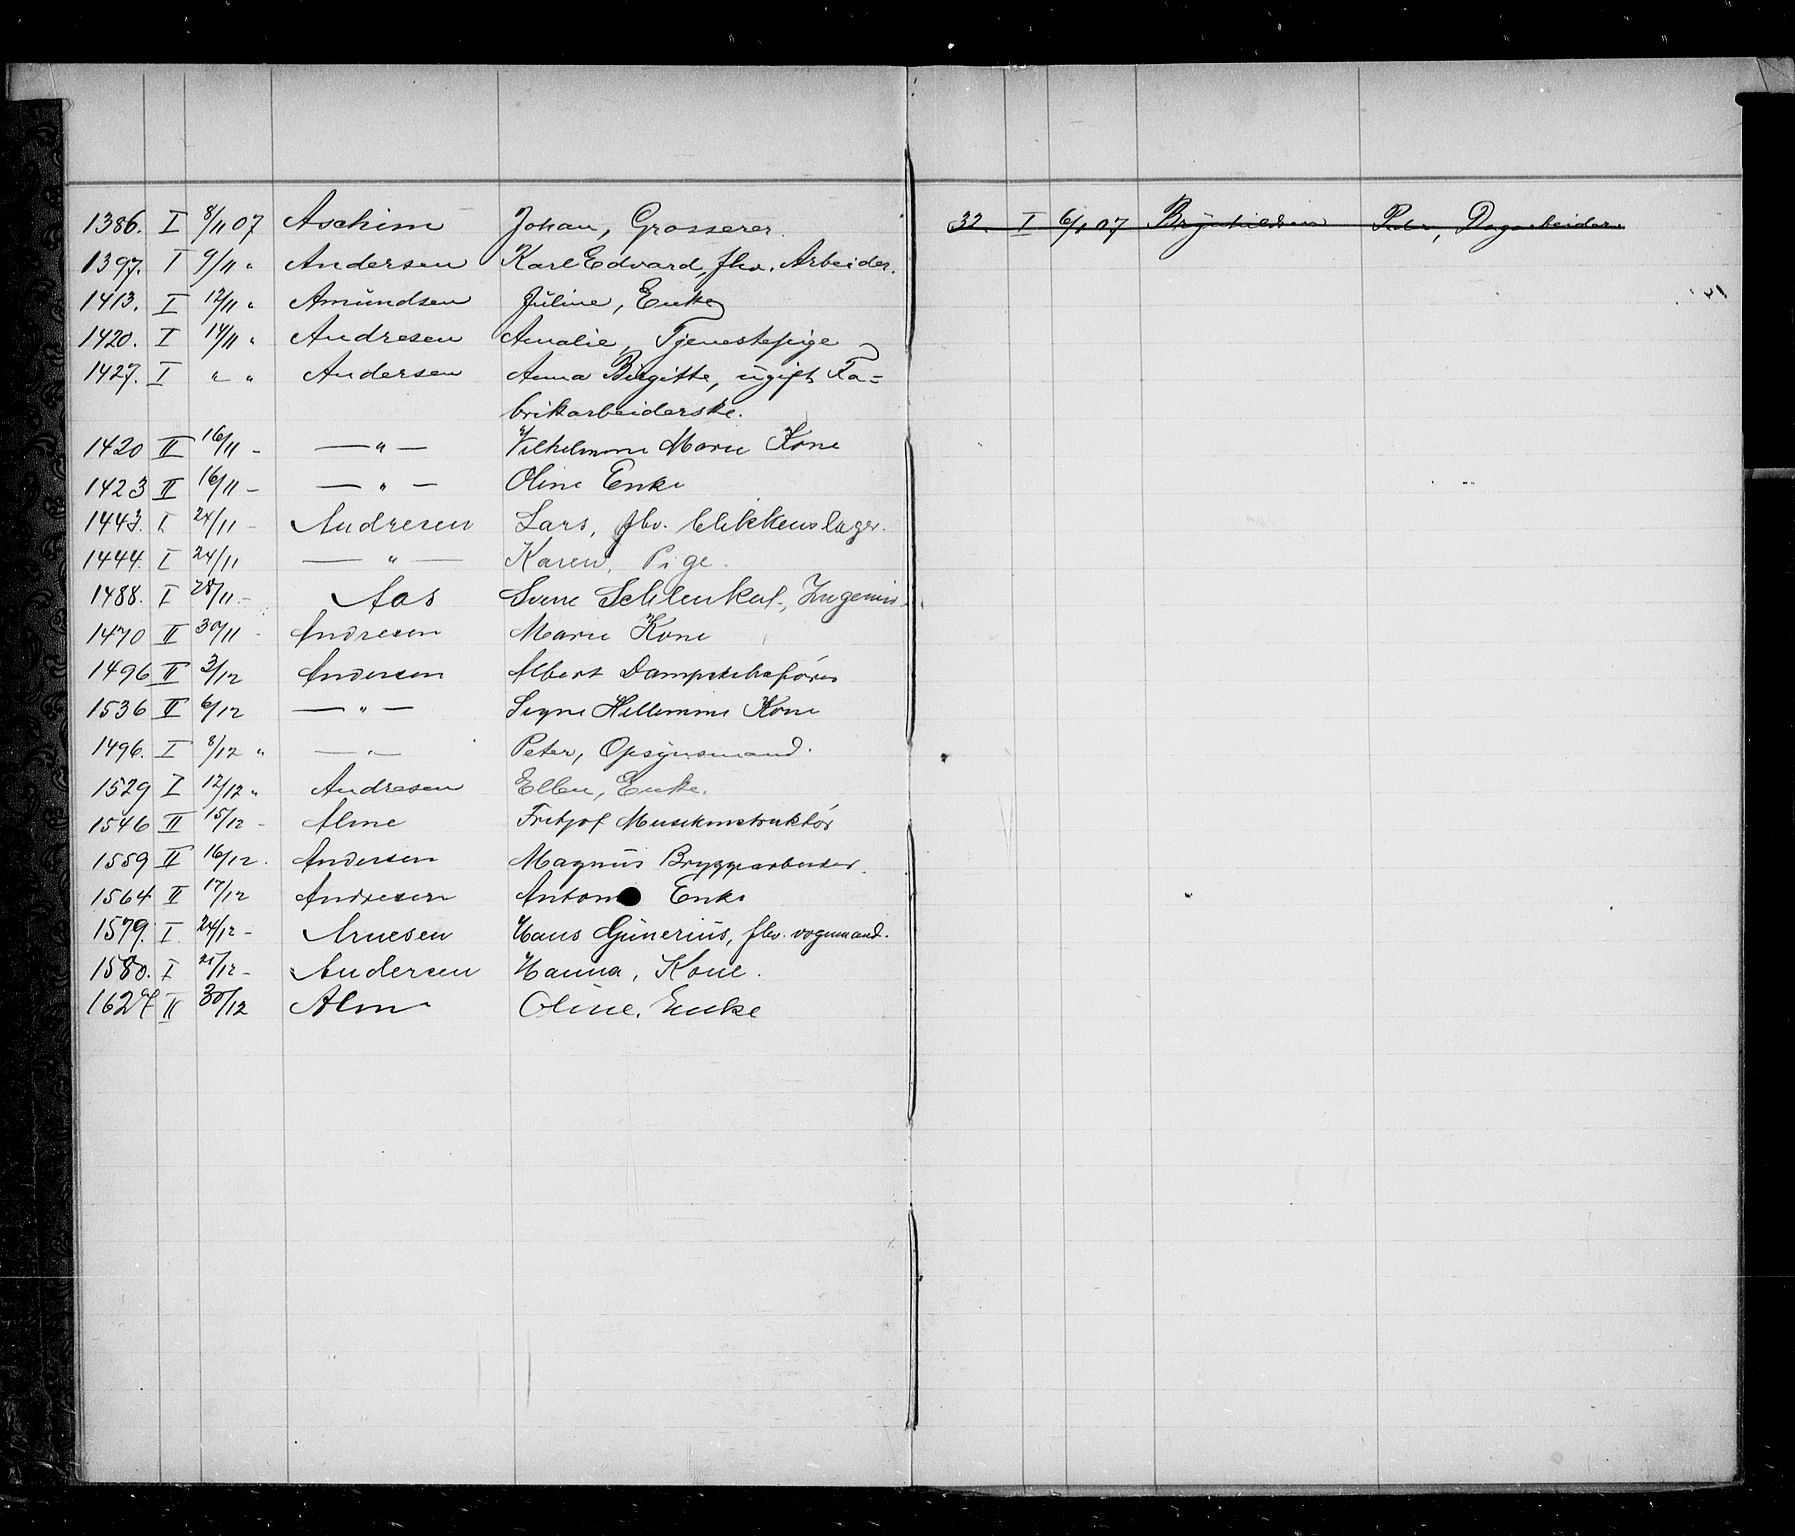 1386. I 8/11 07 Aschim Johan, Grosserer.
1397. I 9/11 " Andersen Karl Edvard, fhv. Arbeider.
1413. I 12/11 " Amundsen Juline, Enke
1420. I 14/11 " Andresen Amalie, Tjenestepige
1427. I " " Andersen Anna Birgitte, ugift Fa=
brikarbeiderske.
1420 II 16/11 - — " — Vilhelmine Marie Kone
1423 II 16/11 - — " — Oline Enke
1443. I 24/11 - Andresen Lars, fhv. blikkenslager.
1444. I 24/11 — " — Karen, Pige.
1488. I 28/11 - Aas Svene Schlenkert, Ingeniør
1470 II 30/11 - Andresen Marie Kone
1496 II 3/12 Andersen Albert Dampskibsfører
1536 II 6/12 — " — Signe Hellemine Kone
1496. I 8/12 " — " — Peter, Opsynsmand.
1529 I 12/12 " Andresen Ellen, Enke.
1546 II 15/12 - Alme Fritjof Musikinstruktør
1559 II 16/12. Andersen Magnus Bryggearbeider.
1564 II 17/12 Andresen Anton Enke
1579. I 24/12 - Arnesen Hans Gunerius, fhv. vognmand.
1580. I 25/12 - Andersen Hanna, Kone.
1627 II 30/12 Alm Oline, Enke
32. I 6/1 07 Brynhildsen Peder, Dagarbeider.